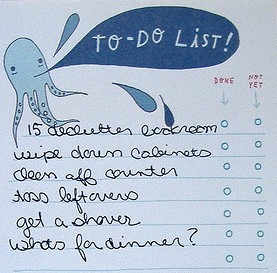 TO-DO LIST!
DONE NOT YET
15 declutter bookroom
wipe down cabinets
clean off counter
toss leftovers
get a shower
whats for dinner?